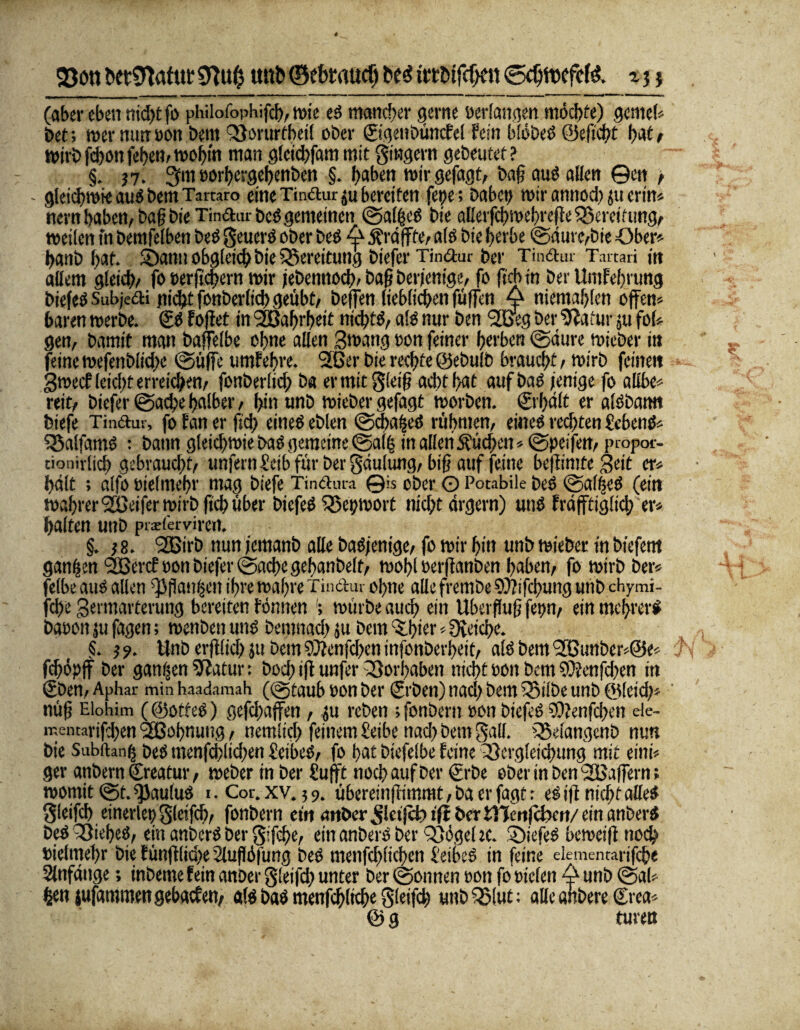 Von der Natur Nutz und Gebrauch des irrdischen Schwefels. 233
(aber eben nicht so philosophisch, wie es mancher gerne verlangen möchte) gemel-
det; wer nun von dem Vorurtheil oder Eigendünckel kein blödes Gesicht hat,
wird schon sehen, wohin man gleichsam mit Fingern gedeutet?
§. 37. Im vorhergehenden §. haben wir gesagt, daß aus allen 🜔en,
gleichwie aus dem Tartaro eine Tinctur zu bereiten seye; dabey wir annoch zu erin-
nern haben, daß die Tinctur des gemeinen Saltzes die allerschwehreste Bereitung,
weilen in demselben des Feuers oder des 🜍 Kräffte, als die herbe Säure, die Ober-
hand hat. Dann obgleich die Bereitung dieser Tinctur der Tinctur Tartari in
allem gleich, so versichern wir jedennoch, daß derjenige, so sich in der Umkehrung
dieses Subjecti nicht sonderlich geübt, dessen lieblichen süssen 🜍 niemahlen offen-
baren werde. Es kostet in Wahrheit nichts, als nur den Weg der Natur zu fol-
gen, damit man dasselbe ohne allen Zwang von seiner herben Säure wieder in
seine wesendliche Süsse umkehre. Wer die rechte Geduld braucht, wird seinen
Zweck leicht erreichen, sonderlich da er mit Fleiß acht hat auf das jenige so allbe-
reit, dieser Sache halber, hin und wieder gesagt worden. Erhält er alsdann
diese Tinctur, so kan er sich eines edlen Schatzes rühmen, eines rechten Lebens-
Balsams : dann gleichwie das gemeine Saltz in allen Küchen-Speisen, propor-
tionirlich gebraucht, unsern Leib für der Fäulung, biß auf seine bestimte Zeit er-
hält ; also vielmehr mag diese Tinctura 🜔is oder ☉ Potabile des Saltzes (ein
wahrer Weiser wird sich über dieses Beywort nicht ärgern) uns kräfftiglich er-
halten und præserviren.
§. 38. Wird nun jemand alle dasjenige, so wir hin und wieder in diesem
gantzen Werck von dieser Sache gehandelt, wohl verstanden haben, so wird der-
selbe aus allen Pflantzen ihre wahre Tinctur ohne alle fremde Mischung und chymi-
sche Zermarterung bereiten können ; würde auch ein Uberfluß seyn, ein mehrers
davon zu sagen; wenden uns demnach zu dem Thier-Reiche.
§. 39. Und erstlich zu dem Menschen insonderheit, als dem Wunder-Ge-
schöpff der gantzen Natur: Doch ist unser Vorhaben nicht von dem Menschen in
Eden, Aphar min haadamah (Staub von der Erden) nach dem Bilde und Gleich-
nüß Elohim (Gottes) geschaffen, zu reden ; sondern von dieses Menschen ele-
mentarischen Wohnung, nemlich seinem Leibe nach dem Fall. Belangend nun
die Substantz des menschlichen Leibes, so hat dieselbe keine Vergleichung mit eini-
ger andern Creatur, weder in der Lufft noch auf der Erde oder in den Wassern;
womit St. Paulus 1. Cor. XV. 39. übereinstimmt, da er sagt: es ist nicht alles
Fleisch einerley Fleisch, sondern ein ander Fleisch ist der Menschen/ ein anders
des Viehes, ein anders der Fische, ein anders der Vögel ꝛc. Dieses beweist noch
vielmehr die künstliche Auflösung des menschlichen Leibes in seine elementarische
Anfänge ; indeme kein ander Fleisch unter der Sonnen von so vielen 🜍 und Sal-
tzen zusammen gebacken, als das menschliche Fleisch und Blut: alle andere Crea-
Gg turen